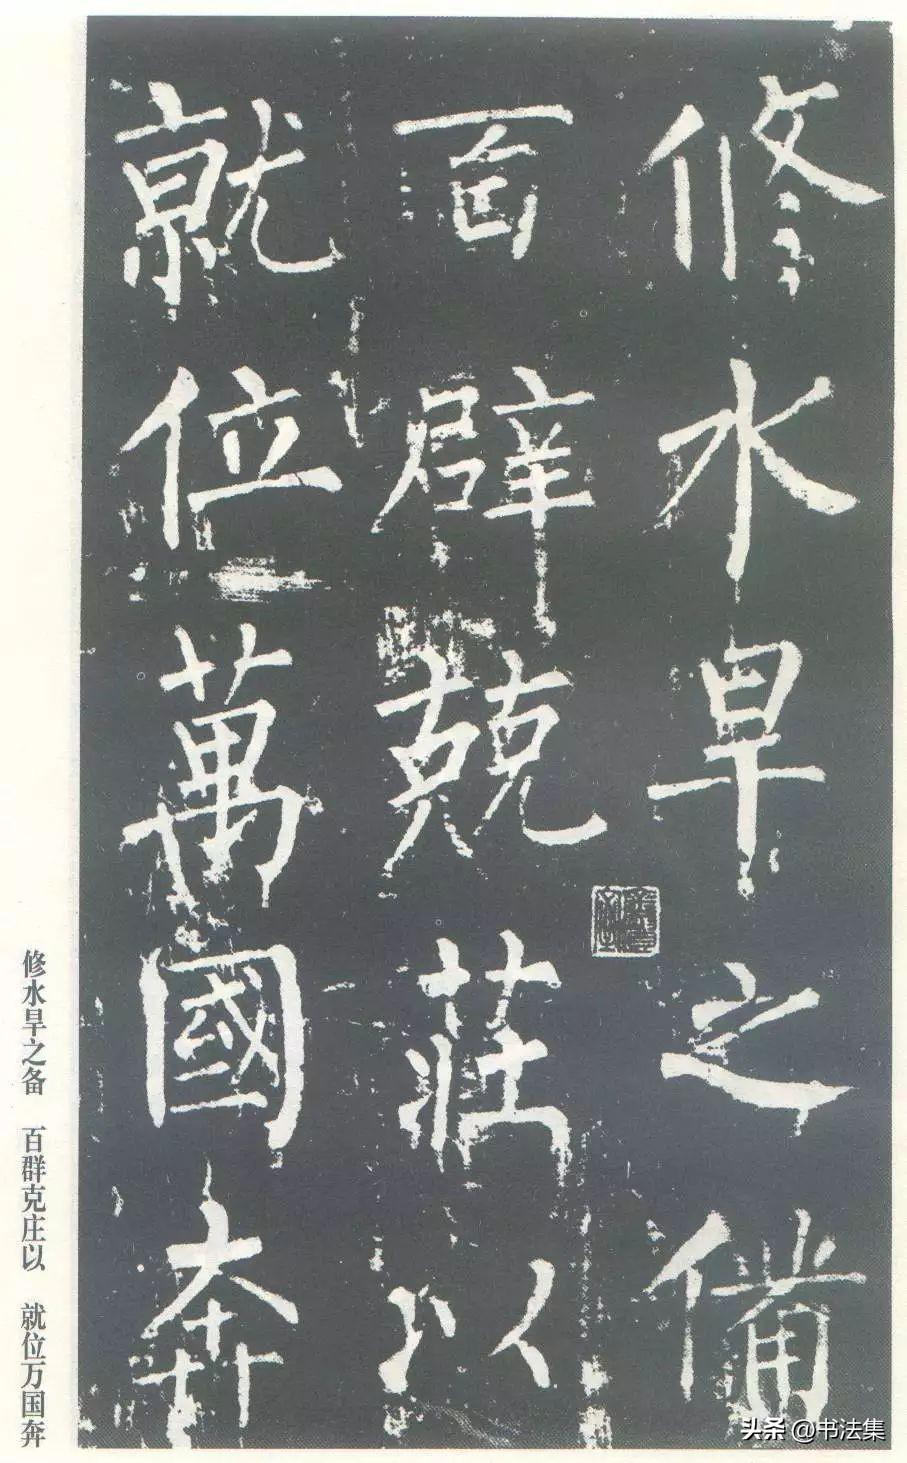 修水旱之備
百辟兢莊以
就位萬國奔
修水旱之备 百群克庄以 就位万国奔
头条 @书法集